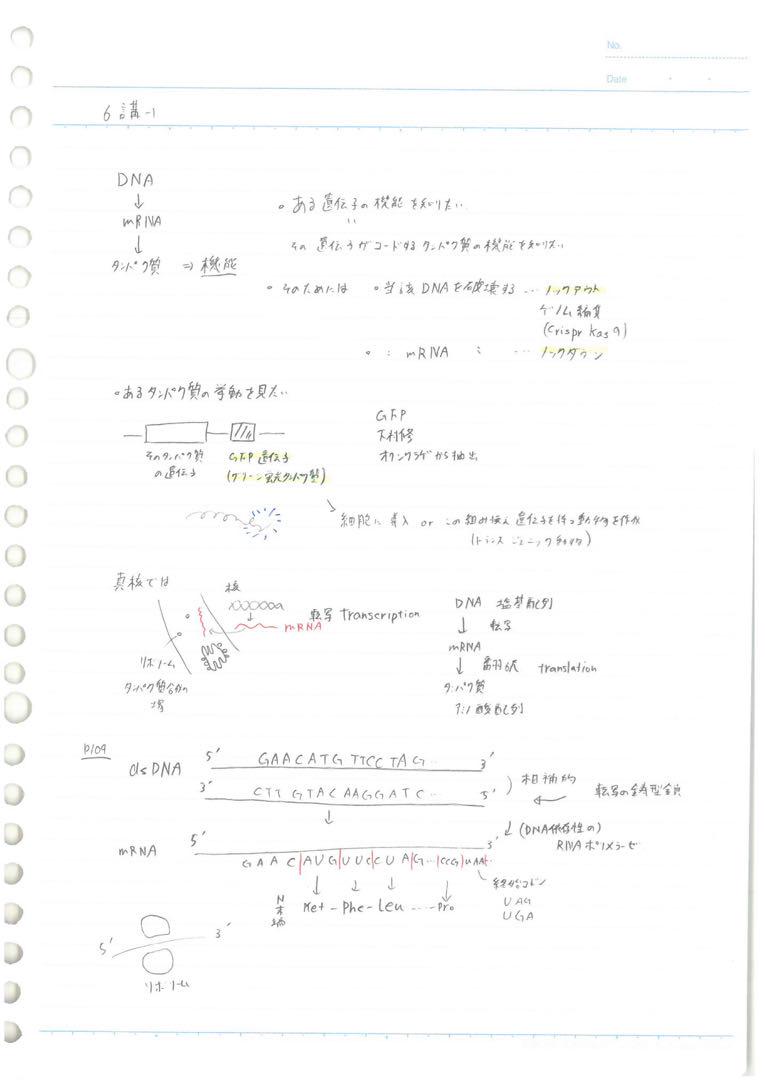 No.
Date
6講-1
DNA
↓
mRNA
↓
タンパク質 ⇒ 機能
。ある遺伝子の機能を知りたい
〃
その遺伝子がコードするタンパク質の機能を知りたい
。そのためには 。当該DNAを破壊する … ノックアウト
ゲノム編集
(Crispr Kas9)
。〃 mRNA 〃 … ノックダウン
。あるタンパク質の挙動を見たい
そのタンパク質
の遺伝子
GFP遺伝子
(グリーン蛍光タンパク質)
GFP
下村脩
オワンクラゲから抽出
細胞に導入 or この組み換え遺伝子を持つ動物を作成
(トランスジェニック動物)
真核では
核
mRNA
転写 transcription
リボソーム
タンパク質合成の
場
DNA 塩基配列
↓ 転写
mRNA
↓ 翻訳 translation
タンパク質
アミノ酸配列
P109
dsDNA
5' GAACATG TTCC TAG… 3'
3' CTT GTAC AAGGATC… 5'
相補的
← 転写の鋳型鎖
↓
↓ (DNA依存性の)
RNAポリメラーゼ
mRNA
5' 3'
GAAC|AUG|UUC|CUA|G…|CCG|UAA|…
終始コドン
UAG
UGA
N末端
Met-Phe-Leu……Pro
5' 3'
リボソーム